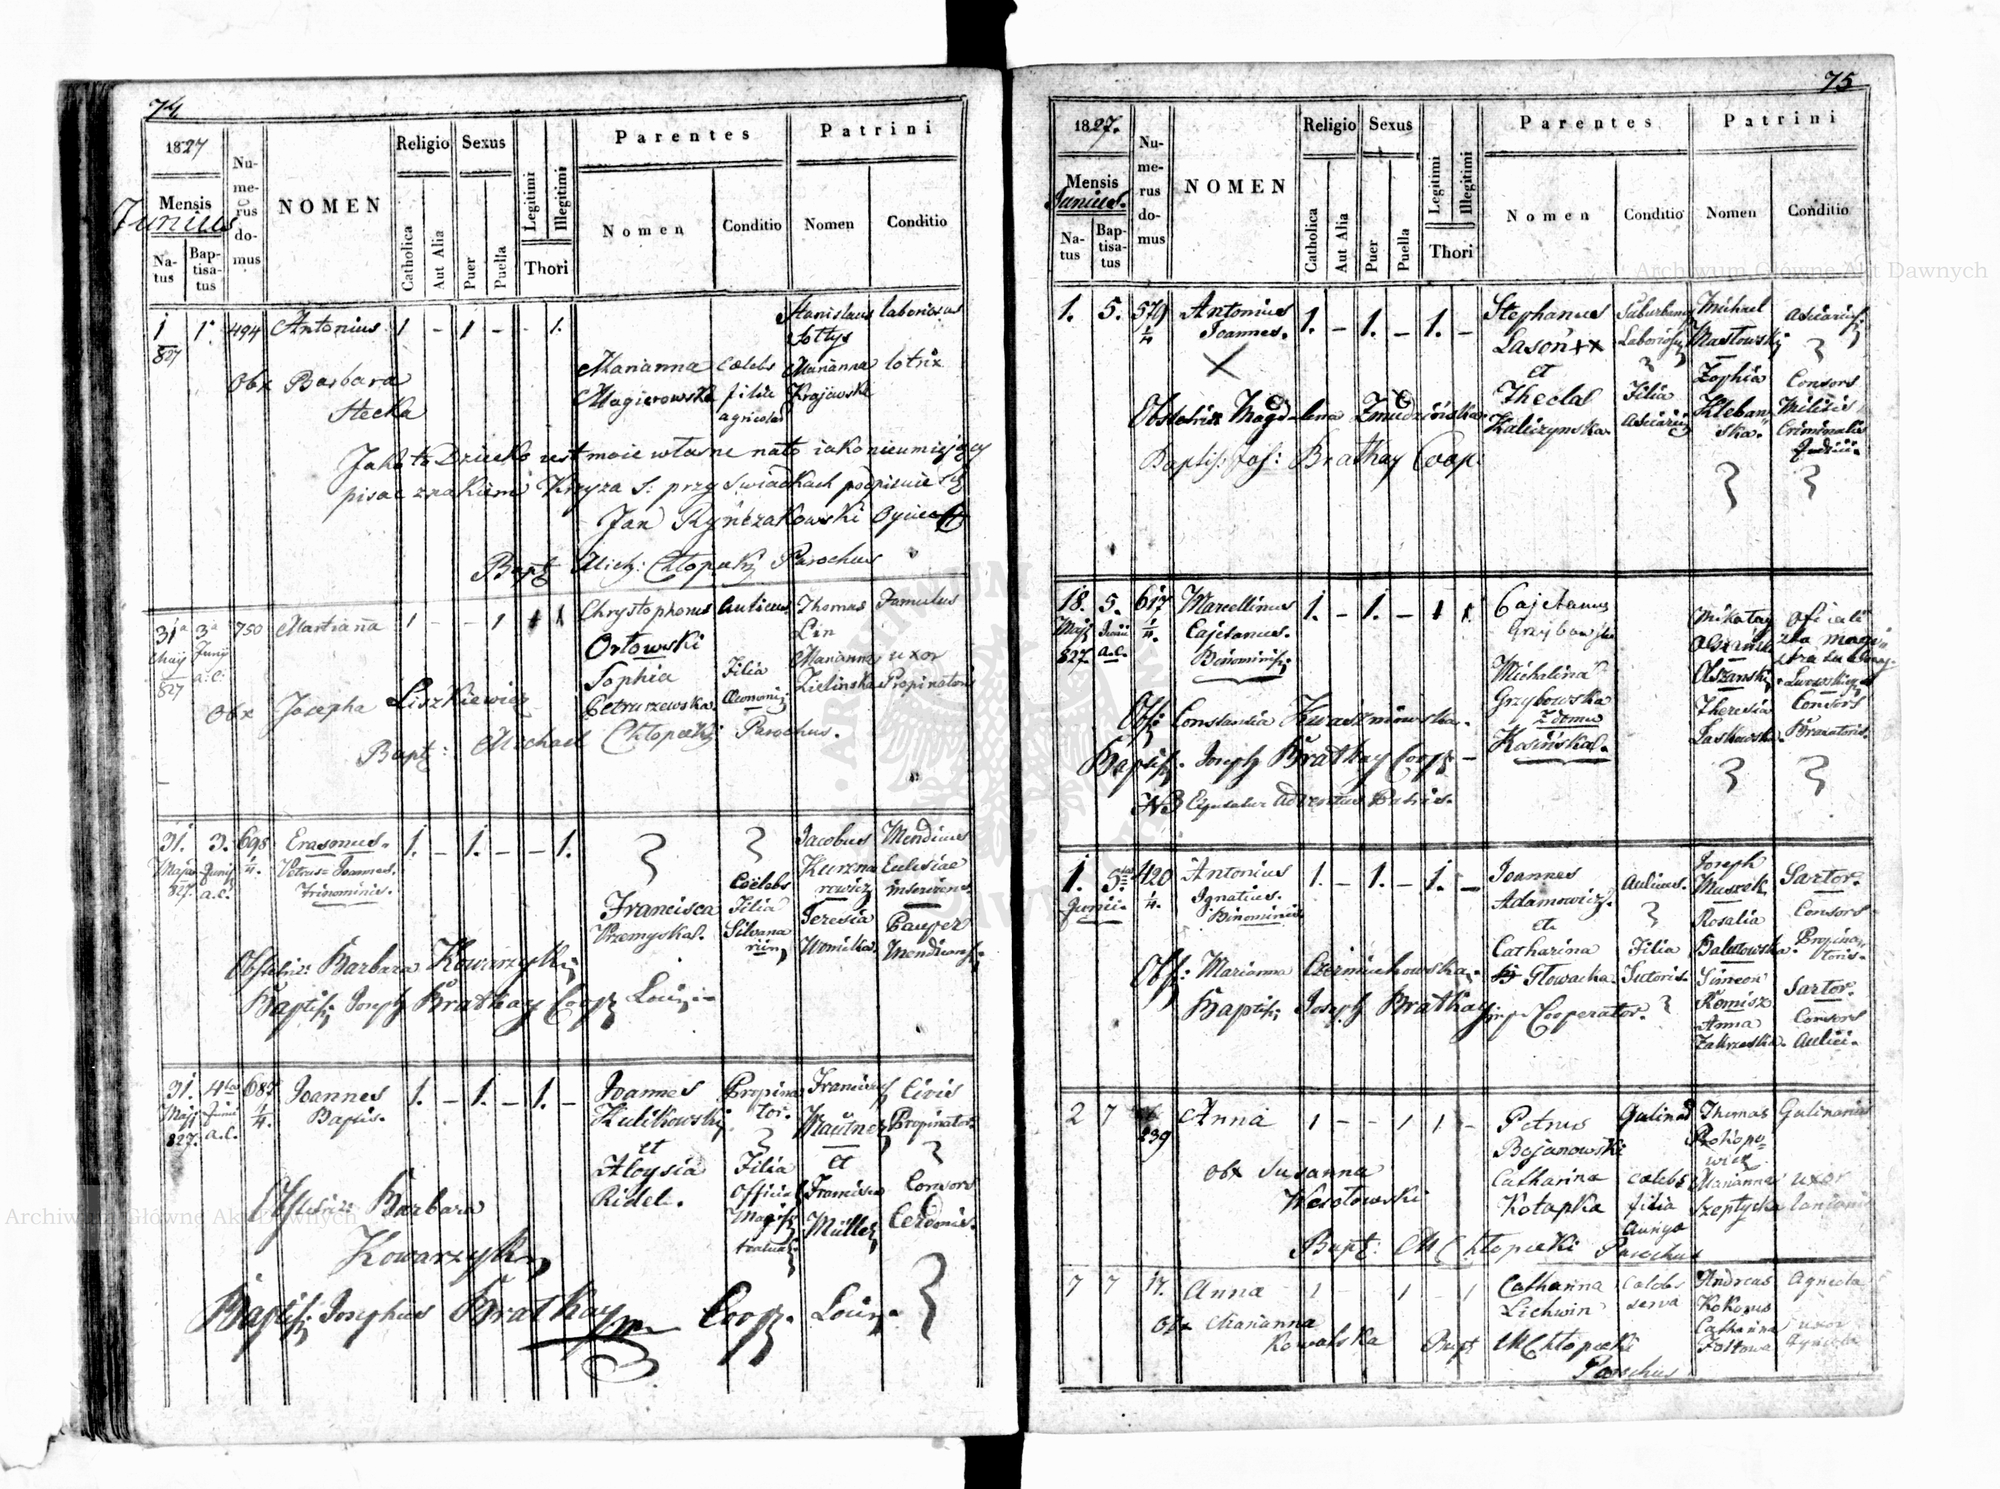 74
1827
Mensis
Junius
Natus
Baptisatus
Numerus domus
NOMEN
Religio
Catholica
Aut Alia
Sexus
Puer
Puella
Legitimi
Illegitimi
Thori
Parentes
Nomen
Conditio
Patrini
Nomen
Conditio
1 1. 494 Antonius 1 - 1 - - 1. Stanislaus laboriosus
827 Sołtys
Obx Barbara Marianna cælebs Marianna lotrix
Stecka Magierowska filia Krajewska
agricolæ
Jako to Dziecko jest moie własne na to iako nieumiejący
pisac znakiem Krzyża S: przy Swiadkach podpisuie się
Jan Rynczakowski Oyciec
Bapt Mich: Chłopecki Parochus
31a 3a 750 Marianna 1 - - 1 Chrystophorus Aulicus Thomas Famulus
Maij Junij Orłowski Lin
827 a: c: Sophia Filia Marianna uxor
Petruszewska Œconomi Zielinska Propinatoris
Obx Josepha Liszkiewicz
Bapt: Michael Chłopecki Parochus.
31. 3. 698 Erasmus. 1. - 1. - - 1. Jacobus Mendicus
Maji Junij 1/4. Petrus Joannes. Ecclesiae
827. a.c. Trinominis. Coelebs inserviens
Francisca Filia Teresia Pauper
Przemyska. Silvana
Obstetrix: Barbara Kowarzyk
Baptis: Joseph Bratkay Coop Loci
31. 4ta 687 Joannes 1. - 1. - 1. - Joannes Propinator. Franciscus Civis
Maji Junii 1/4. Baptis. Kulikowski Mautner Propinator
827. a.c. et et
Aloysia Filia Francisca Consors
Ridel. Officia Müller
Magis
Obstetrix: Barbara
Kowarzyk
Baptis: Josephus Bratkay Coop. Loci.
75
1827.
Mensis
Junius.
Natus
Baptisatus
Numerus domus
NOMEN
Religio
Catholica
Aut Alia
Sexus
Puer
Puella
Legitimi
Illegitimi
Thori
Parentes
Nomen
Conditio
Patrini
Nomen
Conditio
1. 5. 579 Antonius 1. - 1. - 1. - Stephanus Suburbanus Michael Asciarius
1/4 Joannes. Lasoń ++ Laboriosus Masłowski
et Zophia Consors
Thecla Filia Kleban Militis
Obstetrix Magdalena Zmudzińska Kaliczynska. Asciarii ska. Criminalis
Judicii.
Baptis: Jos: Bratkay Coop:
18. 5. 617 Marcellinus 1. - 1. - Cajetanus Mikołay
Maji Junii 1/4. Cajetanus. Grzybowski
827. a.c. Binominis Michalina Olszanski Lwowskiego
Grzybowska Theresia Consors
Obs: Constantia Kwaśniowska. z domu Laskowska. Braxatoris.
Baptis. Joseph Bratkay Coop Kosińska.
NB adventus Patris.
1. 5ta 420 Antonius 1. - 1. - 1. - Joannes Aulicus. Joseph Sartor.
Junii 1/4. Ignatius. Adamowicz. Muszok
Binominis et Rosalia Consors
Catharina Filia Balutowska. Propinatoris.
Obs: Marianna Czerniuchowska. Głowacka. Sutoris. Simeon Sartor.
Baptis: Joseph Bratkay Cooperator. Anna Consors
Zakrzeska. Aulici.
2 7 239 Anna 1 - - 1 1 - Petrus Thomas Gulinarius
Bojanowski Prokopowicz
Obx Susanna Catharina cælebs Marianna uxor
Wesołowski Kotapka filia Szeptycka
Bapt: M Chłopecki Parochus
7 7 17. Anna 1 - 1 - 1 Catharina cælebs Andreas agricola
Lichwin serva Kokorus
Obx Marianna Catharina uxor
Kowalska Bapt M Chłopecki agricolæ
Parochus
Archiwum Główne Akt Dawnych
Archiwum Główne Akt Dawnych